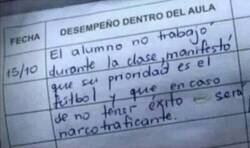 FECHA DESEMPEÑO DENTRO DEL AULA
El alumno no trabajó
15/10 durante la clase, manifestó
que su prioridad es el
fútbol y que en caso
de no tener éxito será
narcotraficante.